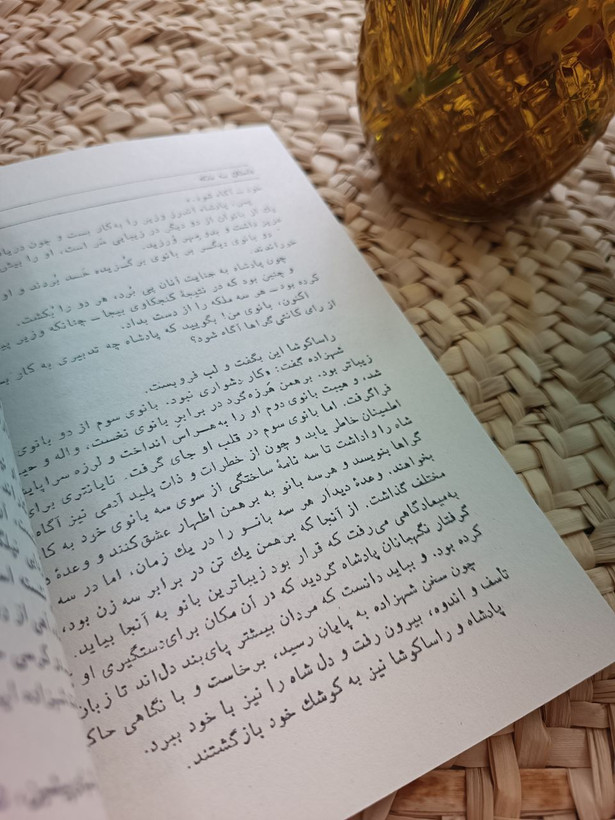 خود ... آگاه شود.»
پس، پادشاه اندرز وزیر را به‌کار بست و چون دریافت
یک از بانوان از دو دیگر در زیبایی سَر است، او را بیش
عزیز داشت و بدو مهر ورزید.
دو بانوی دیگر بر بانوی برگزیده حَسد بُردند و او
خوراندند.
چون پادشاه به جنایت آنان پی بُرد، هر دو را بکُشت.
و چنین بود که در نتیجهٔ کنجکاوی بیجا – چنانکه وزیر
کرده بود – هر سه ملکه را از دست بداد.
اکنون، بانوی من! بگویید که پادشاه چه تدبیری به کار
از رای کانتی‌گراها آگاه شود؟
راساکوشا این بگفت و لب فروبست.
شهزاده گفت: «کار دشواری نبود. بانوی سوم از دو بانوی
زیباتر بود. برهمن هَرزه‌گرد در برابر بانوی نخست، واله و
شد، و هیبت بانوی دوم او را به هراس انداخت و لرزه سراپایش
فراگرفت. اما بانوی سوم در قلب او جای گرفت. تایانتری برای
اطمینان خاطر یابد و چون از خطرات و ذات پلید آدمی نیز آگاه
شاه را واداشت تا سه نامهٔ ساختگی از سوی سه بانوی خرد به
گراها بنویسد و هر سه بانو به برهمن اظهار عشق کنند و وعدهٔ
بخواهند. وعدهٔ دیدار هر سه بانو را در یک زمان، اما در سه
مختلف گذاشت. از آنجا که برهمن یک تن در برابر سه زن بود،
به‌میعادگاهی می‌رفت که قرار بود زیباترین بانو به آنجا بیاید.
گرفتار نگهبانان پادشاه گردید که در آن مکان برای دستگیری او
کرده بود. و بباید دانست که مردان بیشتر پای‌بند دل‌اند تا زبان
چون سخن شهزاده به پایان رسید، برخاست و با نگاهی
تاسف و اندوه، بیرون رفت و دل شاه را نیز با خود ببرد.
پادشاه و راساکوشا نیز به کوشک خود بازگشتند.